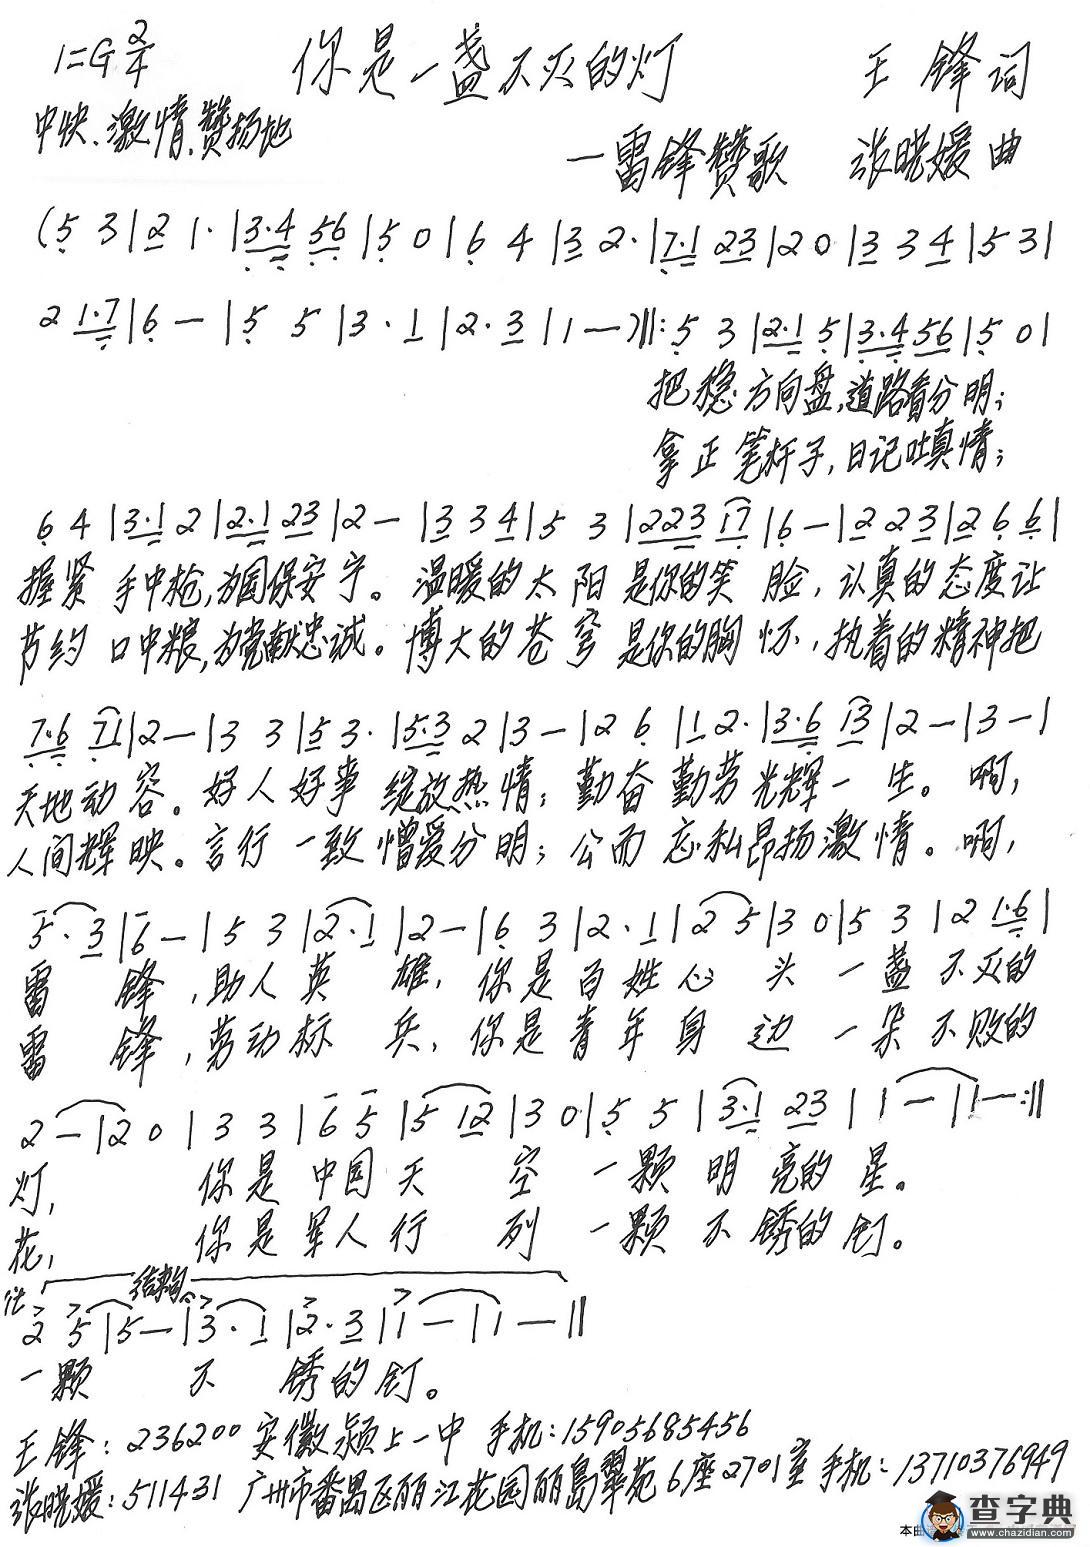 1=G 2/4 你是一盏不灭的灯 王锋词
中快、激情、赞扬地
—雷锋赞歌 张晓媛曲
(5 3|2 1·|3·4 56|5 0|6 4|3 2·|7·1 23|2 0|3 3 4|5 3|
2 1·7|6 —|5 5|3·1|2·3|1 —)‖:5 3|2·1 5|3·4 56|5 0|
把稳方向盘,道路看分明;
拿正笔杆子,日记吐真情;
6 4|3·1 2|2·1 23|2 —|3 3 4|5 3|223 17|6 —|2 2 3|2 6 6|
握紧手中枪,为国保安宁。温暖的太阳是你的笑脸,认真的态度让
节约口中粮,为党献忠诚。博大的苍穹是你的胸怀,执着的精神把
7·6 71|2 —|3 3|5 3·|5·3 2|3 —|2 6|1 2·|3·6 13|2 —|3 —|
天地动容。好人好事绽放热情;勤奋勤劳光辉一生。啊,
人间辉映。言行一致憎爱分明;公而忘私昂扬激情。啊,
5·3|6 —|5 3|2·1|2 —|6 3|2·1|2 5|3 0|5 3|2 1·6|
雷锋,助人英雄,你是百姓心头一盏不灭的
雷锋,劳动标兵,你是青年身边一朵不败的
2 —|2 0|3 3|6 5|5 12|3 0|5 5|3·1 23|1 —|1 —:‖
灯,你是中国天空一颗明亮的星。
花,你是军人行列一颗不锈的钉。
结束句
2 5|5 —|3·1|2·3|1 —|1 —‖
一颗不锈的钉。
王锋:236200安徽颍上一中 手机:15905685456
张晓媛:511431 广州市番禺区丽江花园丽岛翠苑6座2701室 手机:13710376949
查字典
www.chazidian.com